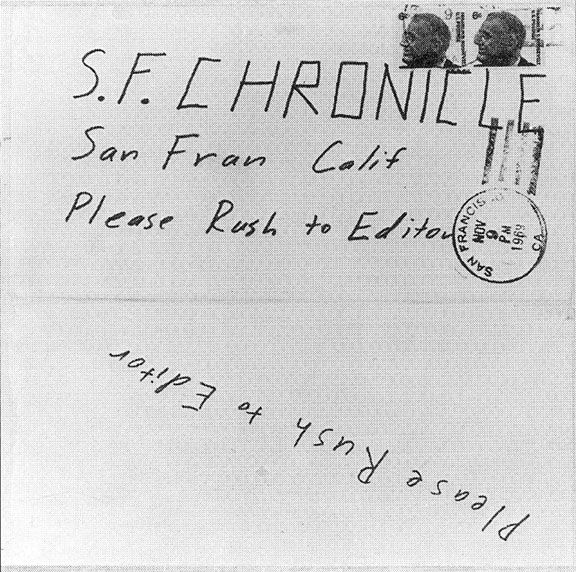 S.F. CHRONICLE
San Fran Calif
Please Rush to Editor
SAN FRANCISCO CA
NOV
9
PM
1969
Please Rush to Editor